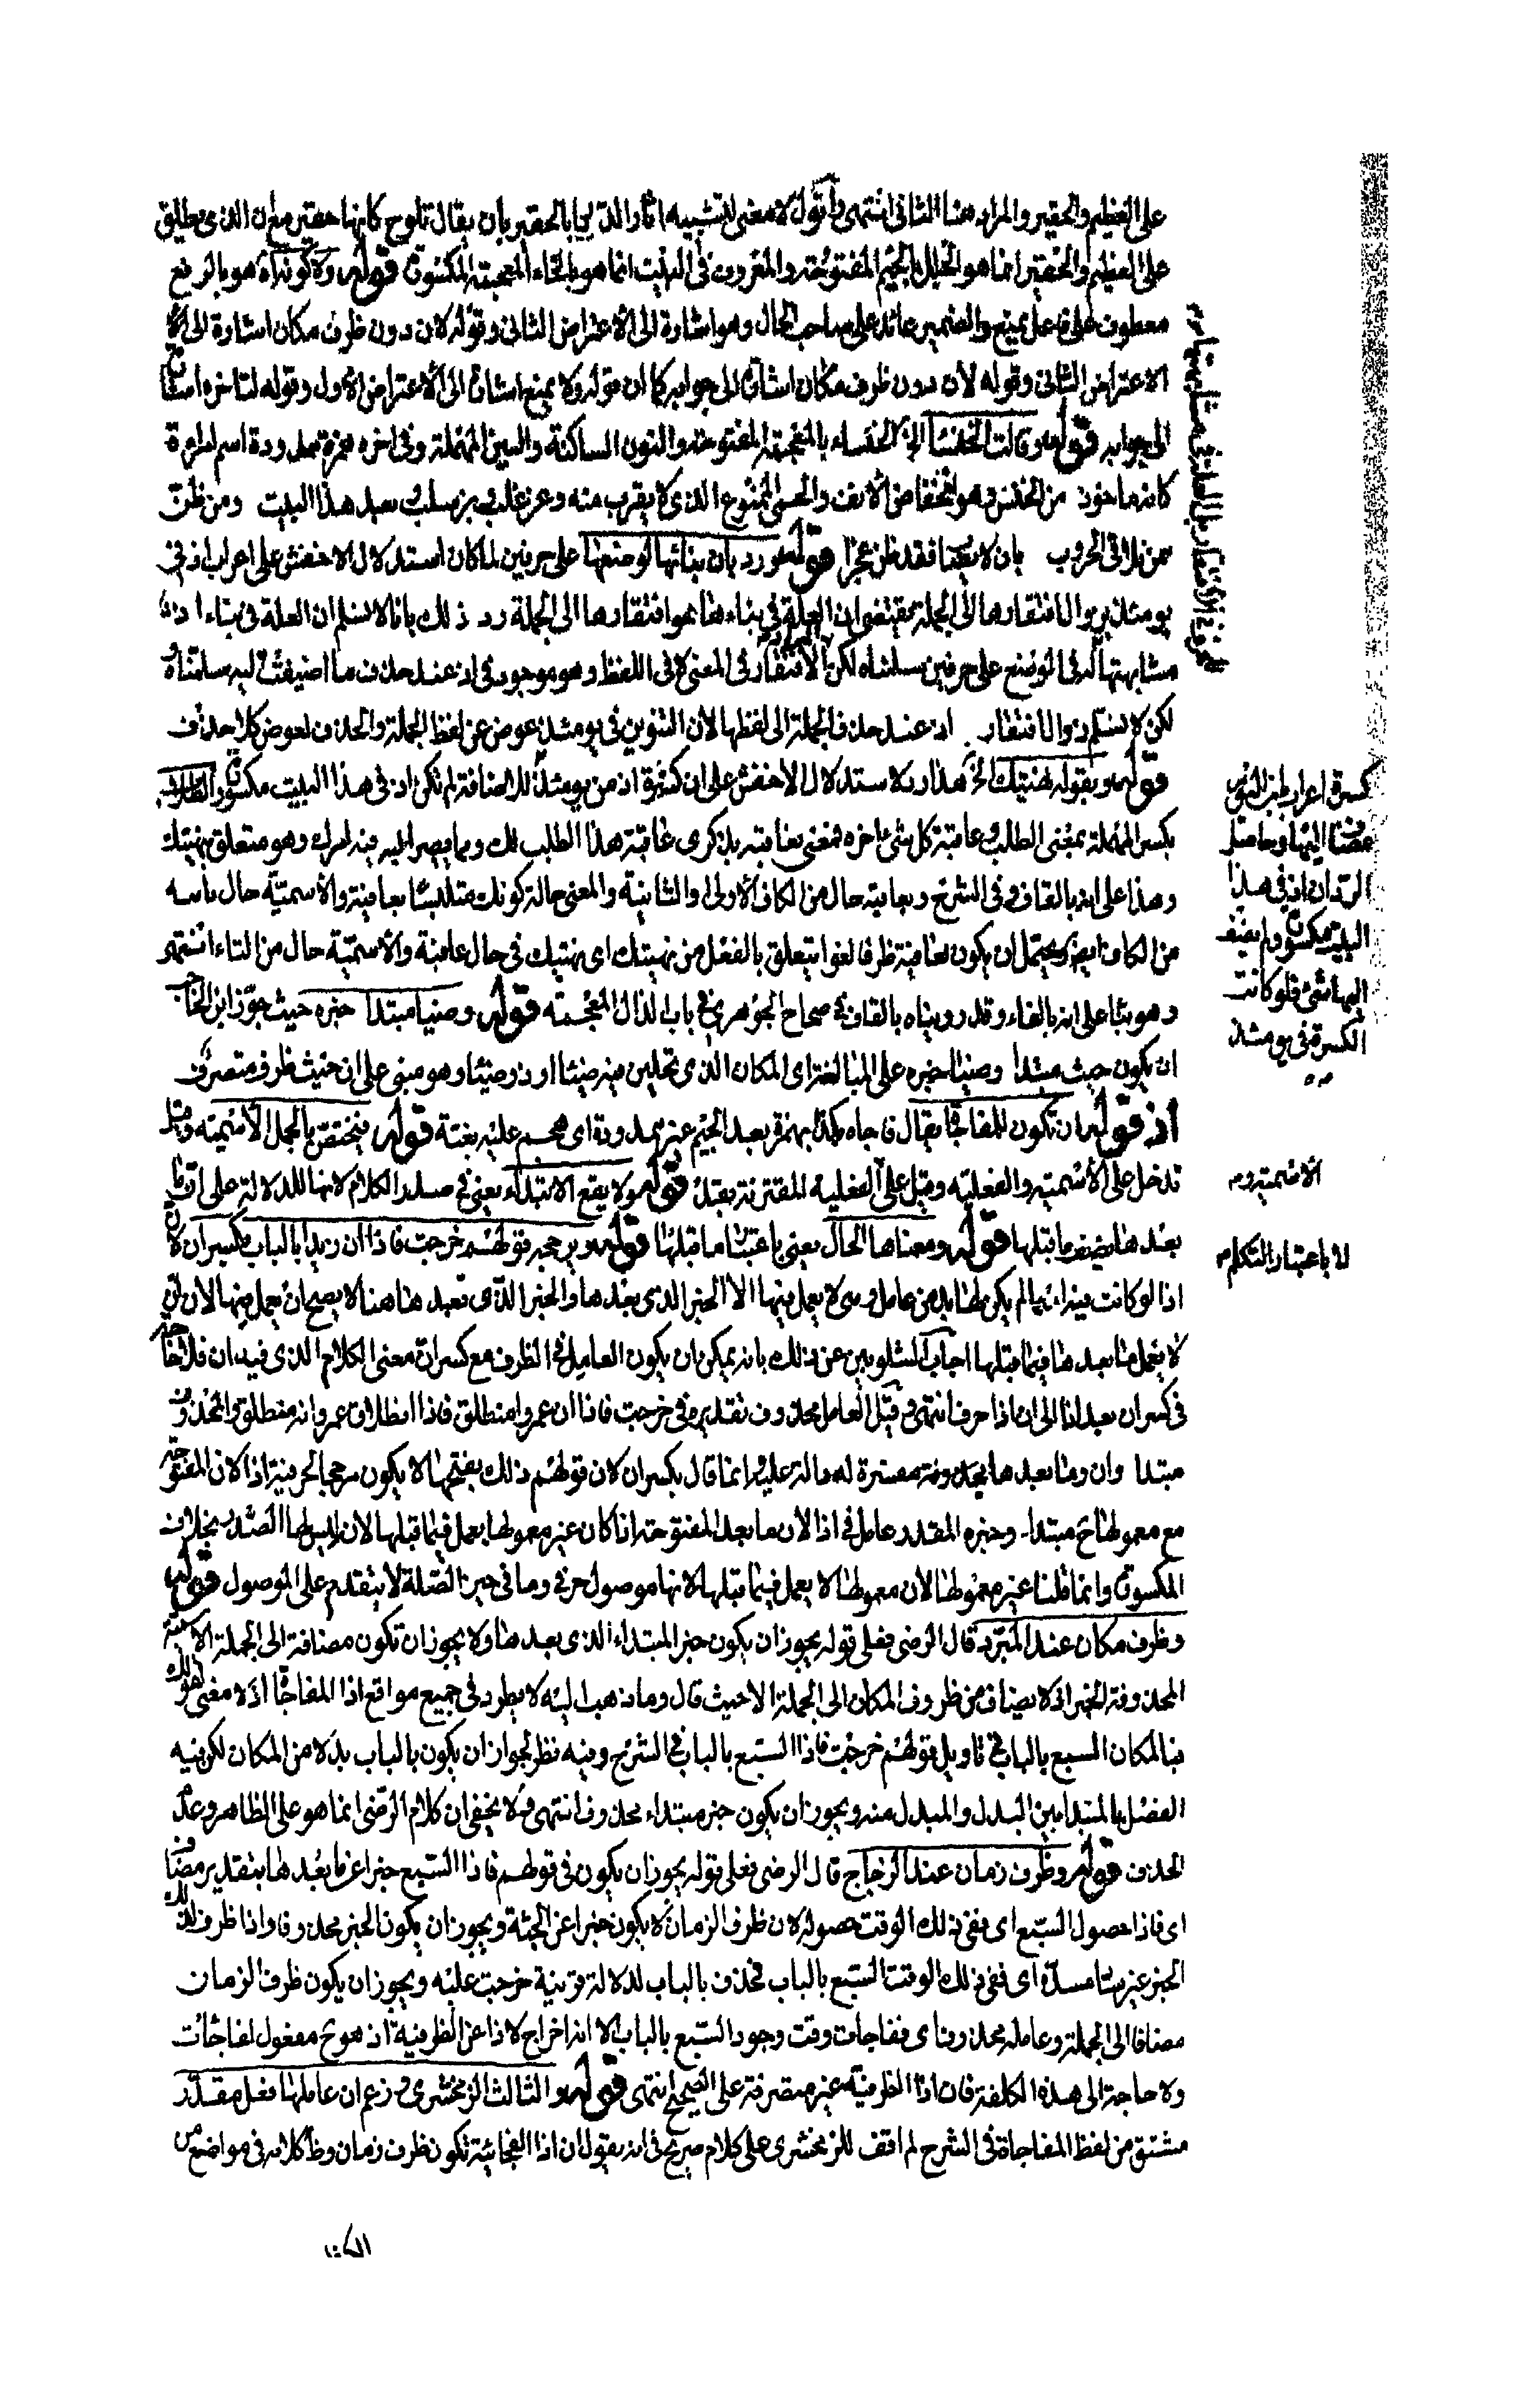 على العظيم والحقير والمراد هنا الثاني انتهى واقول لا معنى لتشبيه اثار الديار بالحقير بان يقال تلوح كانها حقير مع ان الذي يطلق
على العظيم والحقير انما هو الجلل بالجيم المفتوحة والمعروف في البيت انما هو بالخاء المعجمة المكسورة قوله ولا كونه اه هو بالرفع
معطوف على فاعل يمنع والضمير عائد على صاحب الحال وهو اشارة الى الاعتراض الثاني وقوله لان دون ظرف مكان اشارة الى
الاعتراض الثاني وقوله لان دون ظرف مكان اشارة الى جوابه كما ان قوله ولا يمنع اشارة الى الاعتراض الاول وقوله لتاخره اشارة
الى جوابه قوله وقالت الخنساء الخ الخنساء بالمعجمة المفتوحة والنون الساكنة والسين المهملة وفي اخره همزة ممدودة اسم امراة
كانه ماخوذ من الخنس وهو انخفاض الانف والحمى الممنوع الذي لا يقرب منه وعز غلب وبز سلب بعد هذا البيت ومن ظن
ممن يلاقي الحروب بان لا يصاب فقد ظن عجزا قوله ورد بان بنائها لوضعها على حرفين لما كان استدلال الاخفش على اعراب اذ في
يومئذ بزوال افتقارها الى الجملة يقتضي ان العلة في بناءها هو افتقارها الى الجملة رد ذلك بانا لا نسلم ان العلة في بناء اذ
مشابهتها له في الوضع على حرفين سلمناه لكن الافتقار في المعنى لا في اللفظ وهو موجود في اذ عند حذف ما اضيفت اليه سلمناه
لكن لا نسلم زوال افتقار اذ عند حذف الجملة الى لفظها لان التنوين في يومئذ عوض عن لفظ الجملة والحذف لعوض كلا حذف
قوله وبقوله نهيتك الخ هذا رد لاستدلال الاخفش على ان كسرة اذ من يومئذ للاضافة لم تكن اذ في هذا البيت مكسورة الطلاب
بكسر المهملة بمعنى الطلب عاقبة كل شئ اخره فمعنى بعاقبة بذكرى عاقبة هذا الطلب لك وما يصير اليه فيه امرك وهو متعلق بنهيتك
وهذا على انه بالقاف وفي الشرح وبعافية حال من الكاف الاولى والثانية والمعنى حالة كونك متلبسا بعافية والاسمية حال ثانية
من الكاف ايضا ويحتمل ان يكون بعافية ظرفا لغوا يتعلق بالفعل من نهيتك اى نهيتك في حال عافية والاسمية حال من التاء انتهى
وهو بناء على انه بالفاء وقد رويناه بالقاف في صحاح الجوهري في باب الذال المعجمة قوله وضيئا مبتدا خبره حيث جوز ابن الخباز
ان يكون حيث مبتدا وضيئا خبره على المبالغة اى المكان الذي تحلين فيه ضيئا او ذو ضيئا وهو مبني على ان حيث ظرف متصرف
اذ قوله ان تكون للمفاجاة يقال فاجاه بهمزة بعد الجيم غير ممدودة اى هجم عليه بغتة قوله فيختص بالجمل الاسمية وقيل
تدخل على الاسمية والفعلية وقيل على الفعلية المقترنة بقد قوله ولا يقع الابتداء يعني في صدر الكلام لانها للدلالة على ان ما
بعدها يضعف ما قبلها قوله ومعناها الحال يعني باعتبار ما قبلها قوله ويرجحه قولهم خرجت فاذا ان زيدا بالباب بكسر ان لان
اذا لو كانت غير اه لم يكن لها بد من عامل وهي لا يعمل فيها الا الخبر الذي بعدها والخبر الذي بعدها هنا لا يصح ان يعمل فيها لان ان
لا يعمل ما بعدها فيما قبلها اجاب الشلوبين عن ذلك بانه يمكن بان يكون العامل في الظرف مع كسر ان معنى الكلام الذي فيه ان فلا حاجة
في كسر ان بعد اذا الى ان اذا حرف انتهى وقيل العامل محذوف تقديره في خرجت فاذا ان عمروا منطلق فاذا انطلاق عمرو انه منطلق والمحذوف
مبتدا وان وما بعدها محذوفة مفسرة له دالة عليه انما قال بكسر ان لان قولهم ذلك بفتحها لا يكون مرجحا لحرفية اذا لان المفتوحة
مع معمولها ح مبتدا وخبره المقدر عامل في اذا لان ما بعد المفتوحة اذا كان غير معمولها يعمل فيما قبلها لان ليس لها الصدر بخلاف
المكسورة وانما قلنا غير معمولها لان معمولها لا يعمل فيما قبلها لانها موصول حرفي وما في حيز الصلة لا يتقدم على الموصول قوله
وظرف مكان عند المبرد قال الرضي فعلى قوله يجوز ان يكون خبر المبتداء الذي بعدها ولا يجوز ان تكون مضافة الى الجملة الاسمية
المحذوفة الخبر اذ لا يضاف من ظروف المكان الى الجملة الا حيث قال وما ذهب اليه لا يطرد في جميع مواقع اذا المفاجاة اذ لا معنى لقولك
فبالمكان السبع بالباب في تاويل قولهم خرجت فاذا السبع بالباب في الشرح وفيه نظر لجواز ان يكون بالباب بدلا من المكان لكن فيه
الفصل بالمبتدا بين البدل والمبدل منه ويجوز ان يكون خبر مبتداء محذوف انتهى ولا يخفى ان كلام الرضي انما هو على الظاهر وعدم
الحذف قوله وظرف زمان عند الزجاج قال الرضي فعلى قوله يجوز ان يكون في قولهم فاذا السبع خبرا عما بعدها بتقدير مضاف
اى فاذا حصول السبع اى ففي ذلك الوقت حصوله لان ظرف الزمان لا يكون خبرا عن الجثة ويجوز ان يكون الخبر محذوفا واذا ظرف لذلك
الخبر غير ساد مسده اى ففي ذلك الوقت السبع بالباب فحذف بالباب لدلالة قرينة خرجت عليه ويجوز ان يكون ظرف الزمان
مضافا الى الجملة وعامله محذوف اى ففاجات وقت وجود السبع بالباب الا انه اخراج لاذا عن الظرفية اذ هو ح مفعول لفاجات
ولا حاجة الى هذه الكلفة فان اذا الظرفية غير متصرفة على الصحيح انتهى قوله والثالث الزمخشري وزعم ان عاملها فعل مقدر
مشتق من لفظ المفاجاة في الشرح لم اقف للزمخشري على كلام صريح في انه يقول ان اذا الفجائية تكون ظرف زمان وظ كلامه في مواضع من
كسرة اعراب لجر النون
مضاف اليها وحاصل
الرد ان اذ في هذا
البيت مكسورة ولم يضف
اليها شئ فلو كانت
الكسرة في يومئذ
الاسمية وم
لا باعتبار التكلم